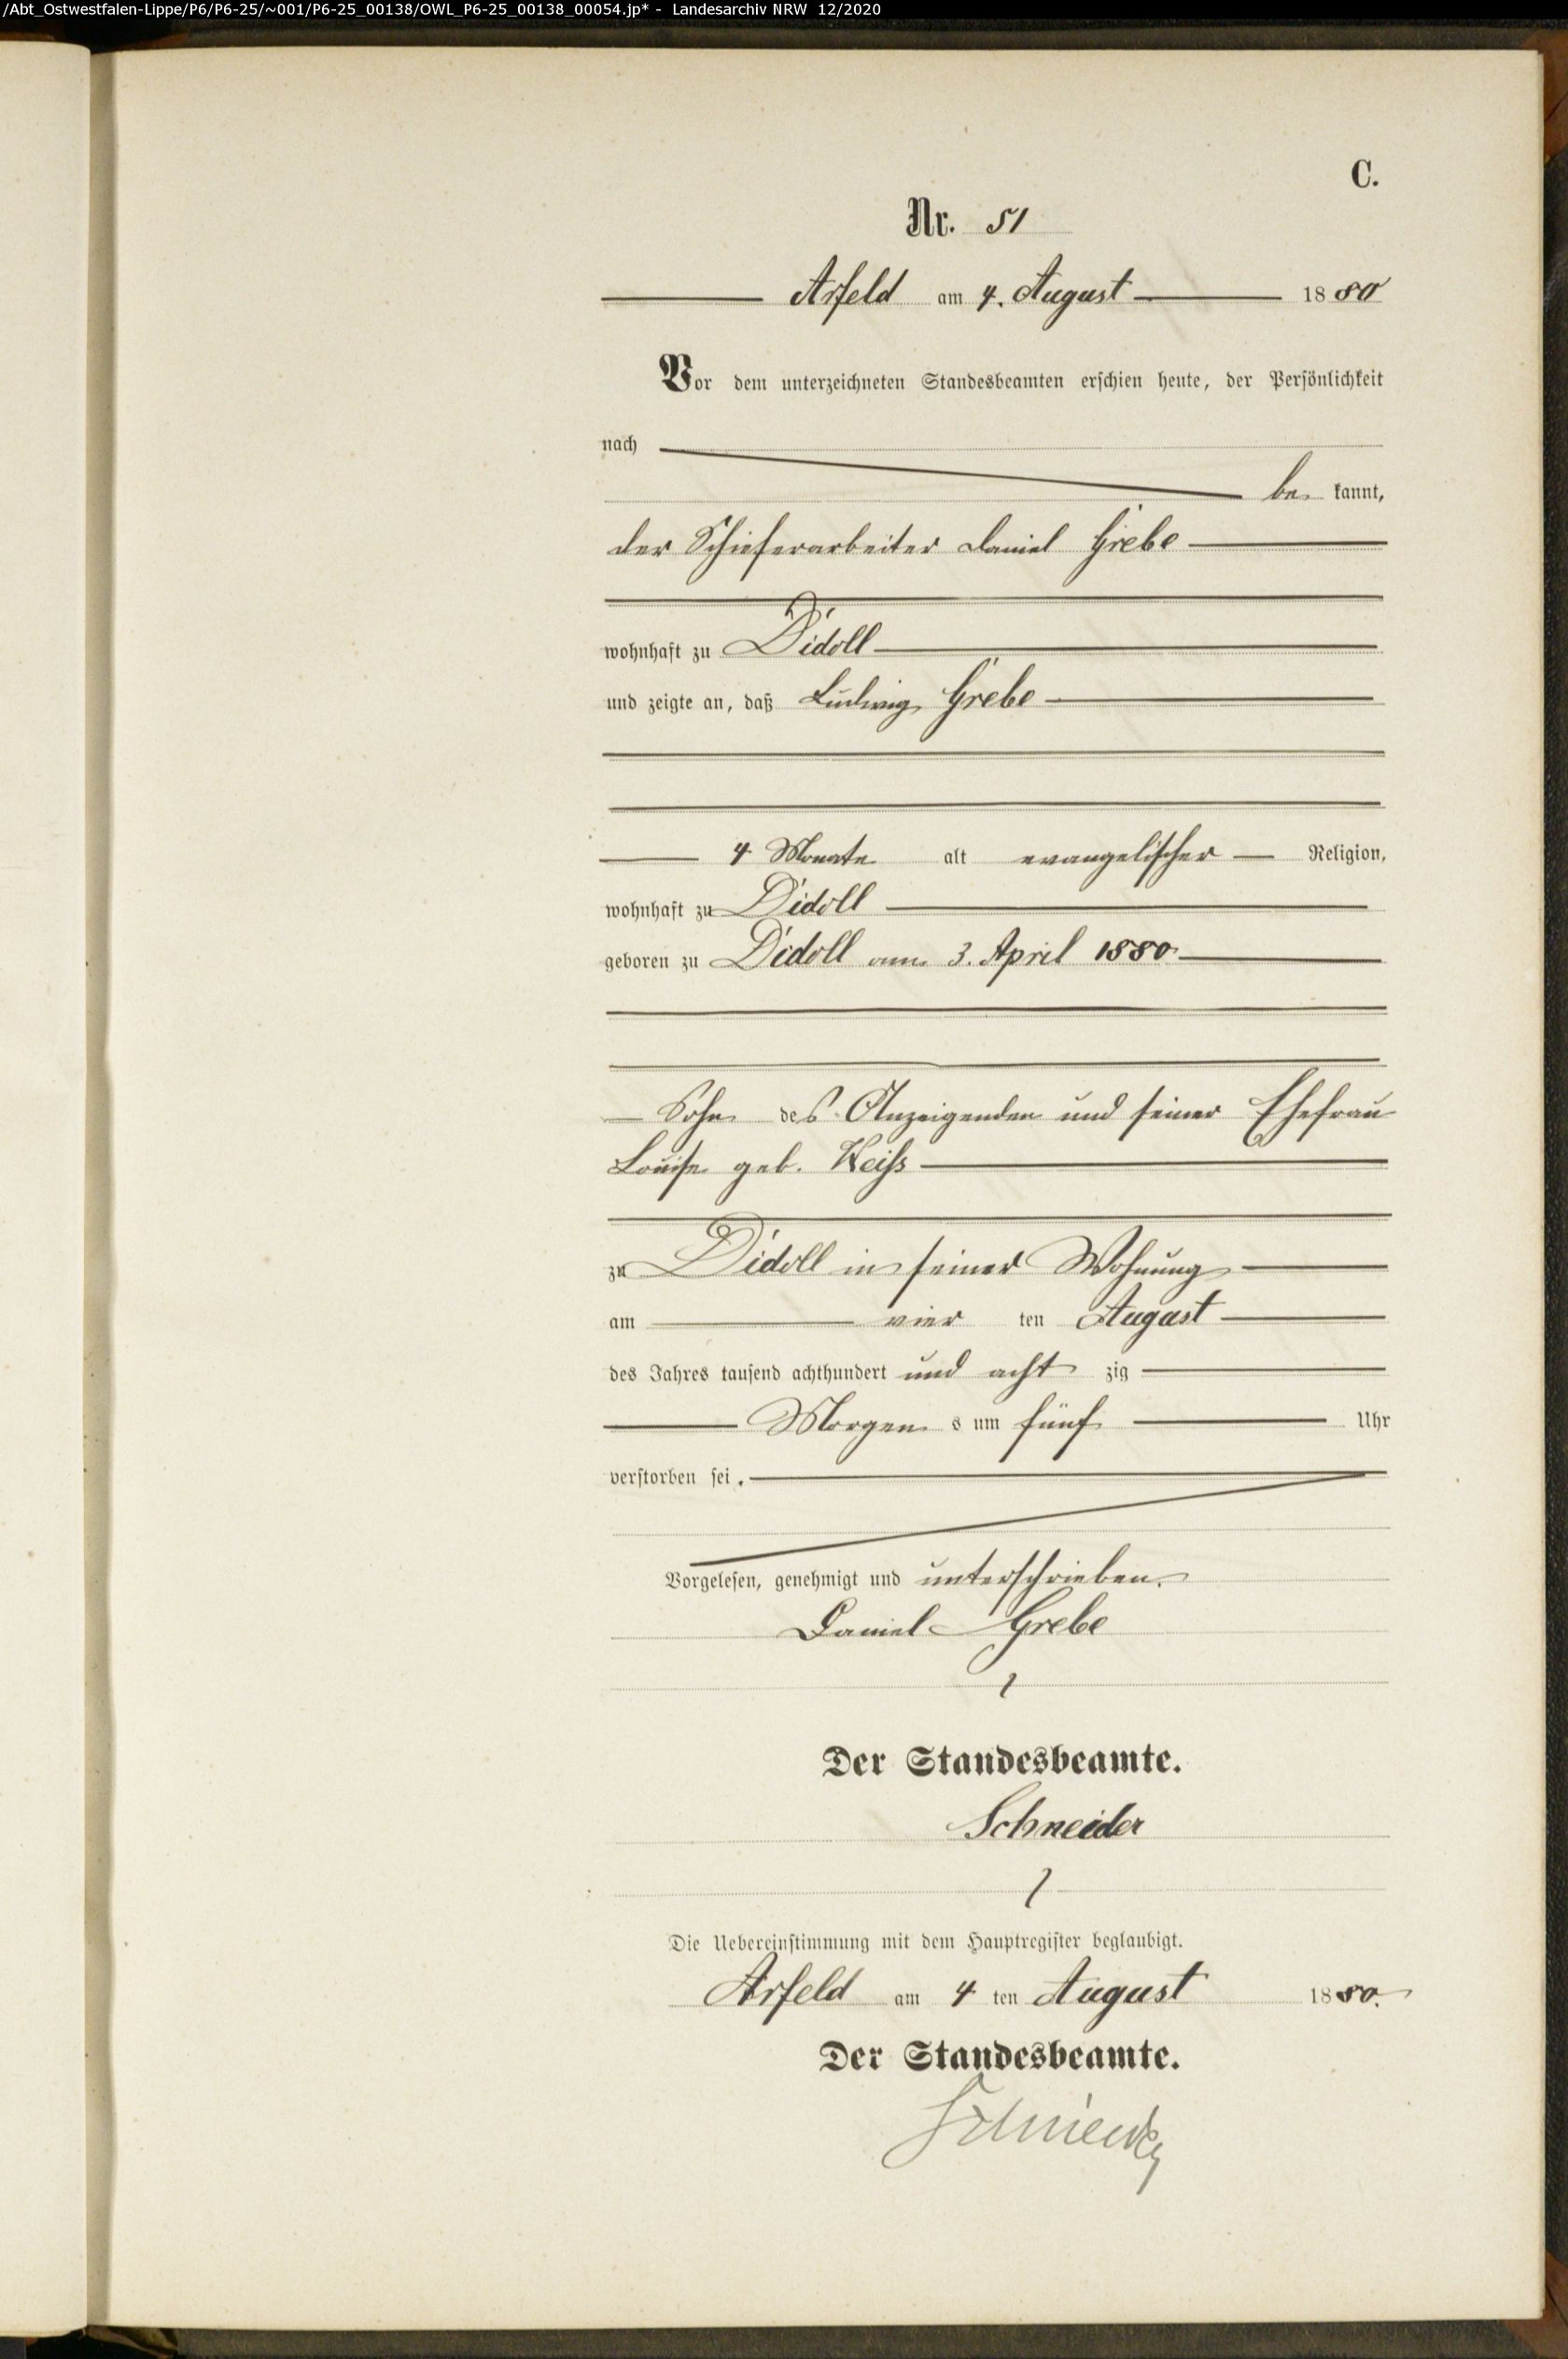 /Abt_Ostwestfalen-Lippe/P6/P6-25/~001/P6-25_00138/OWL_P6-25_00138_00054.jp* - Landesarchiv NRW 12/2020
C.
Nr. 51
Arfeld am 4. August 1880
Vor dem unterzeichneten Standesbeamten erschien heute, der Persönlichkeit
nach
be kannt,
der Schieferarbeiter Daniel Grebe
wohnhaft zu Didoll
und zeigte an, daß Ludwig Grebe
4 Monate alt evangelischer Religion,
wohnhaft zu Didoll
geboren zu Didoll am 3. April 1880
Sohn des Anzeigenden und seiner Ehefrau
Louise geb. Weiß
zu Didoll in seiner Wohnung
am vier ten August
des Jahres tausend achthundert und acht zig
Morgen s um fünf Uhr
verstorben sei.
Vorgelesen, genehmigt und unterschrieben.
Daniel Grebe
Der Standesbeamte.
Schneider
Die Uebereinstimmung mit dem Hauptregister beglaubigt.
Arfeld am 4 ten August 1880.
Der Standesbeamte.
Schneider